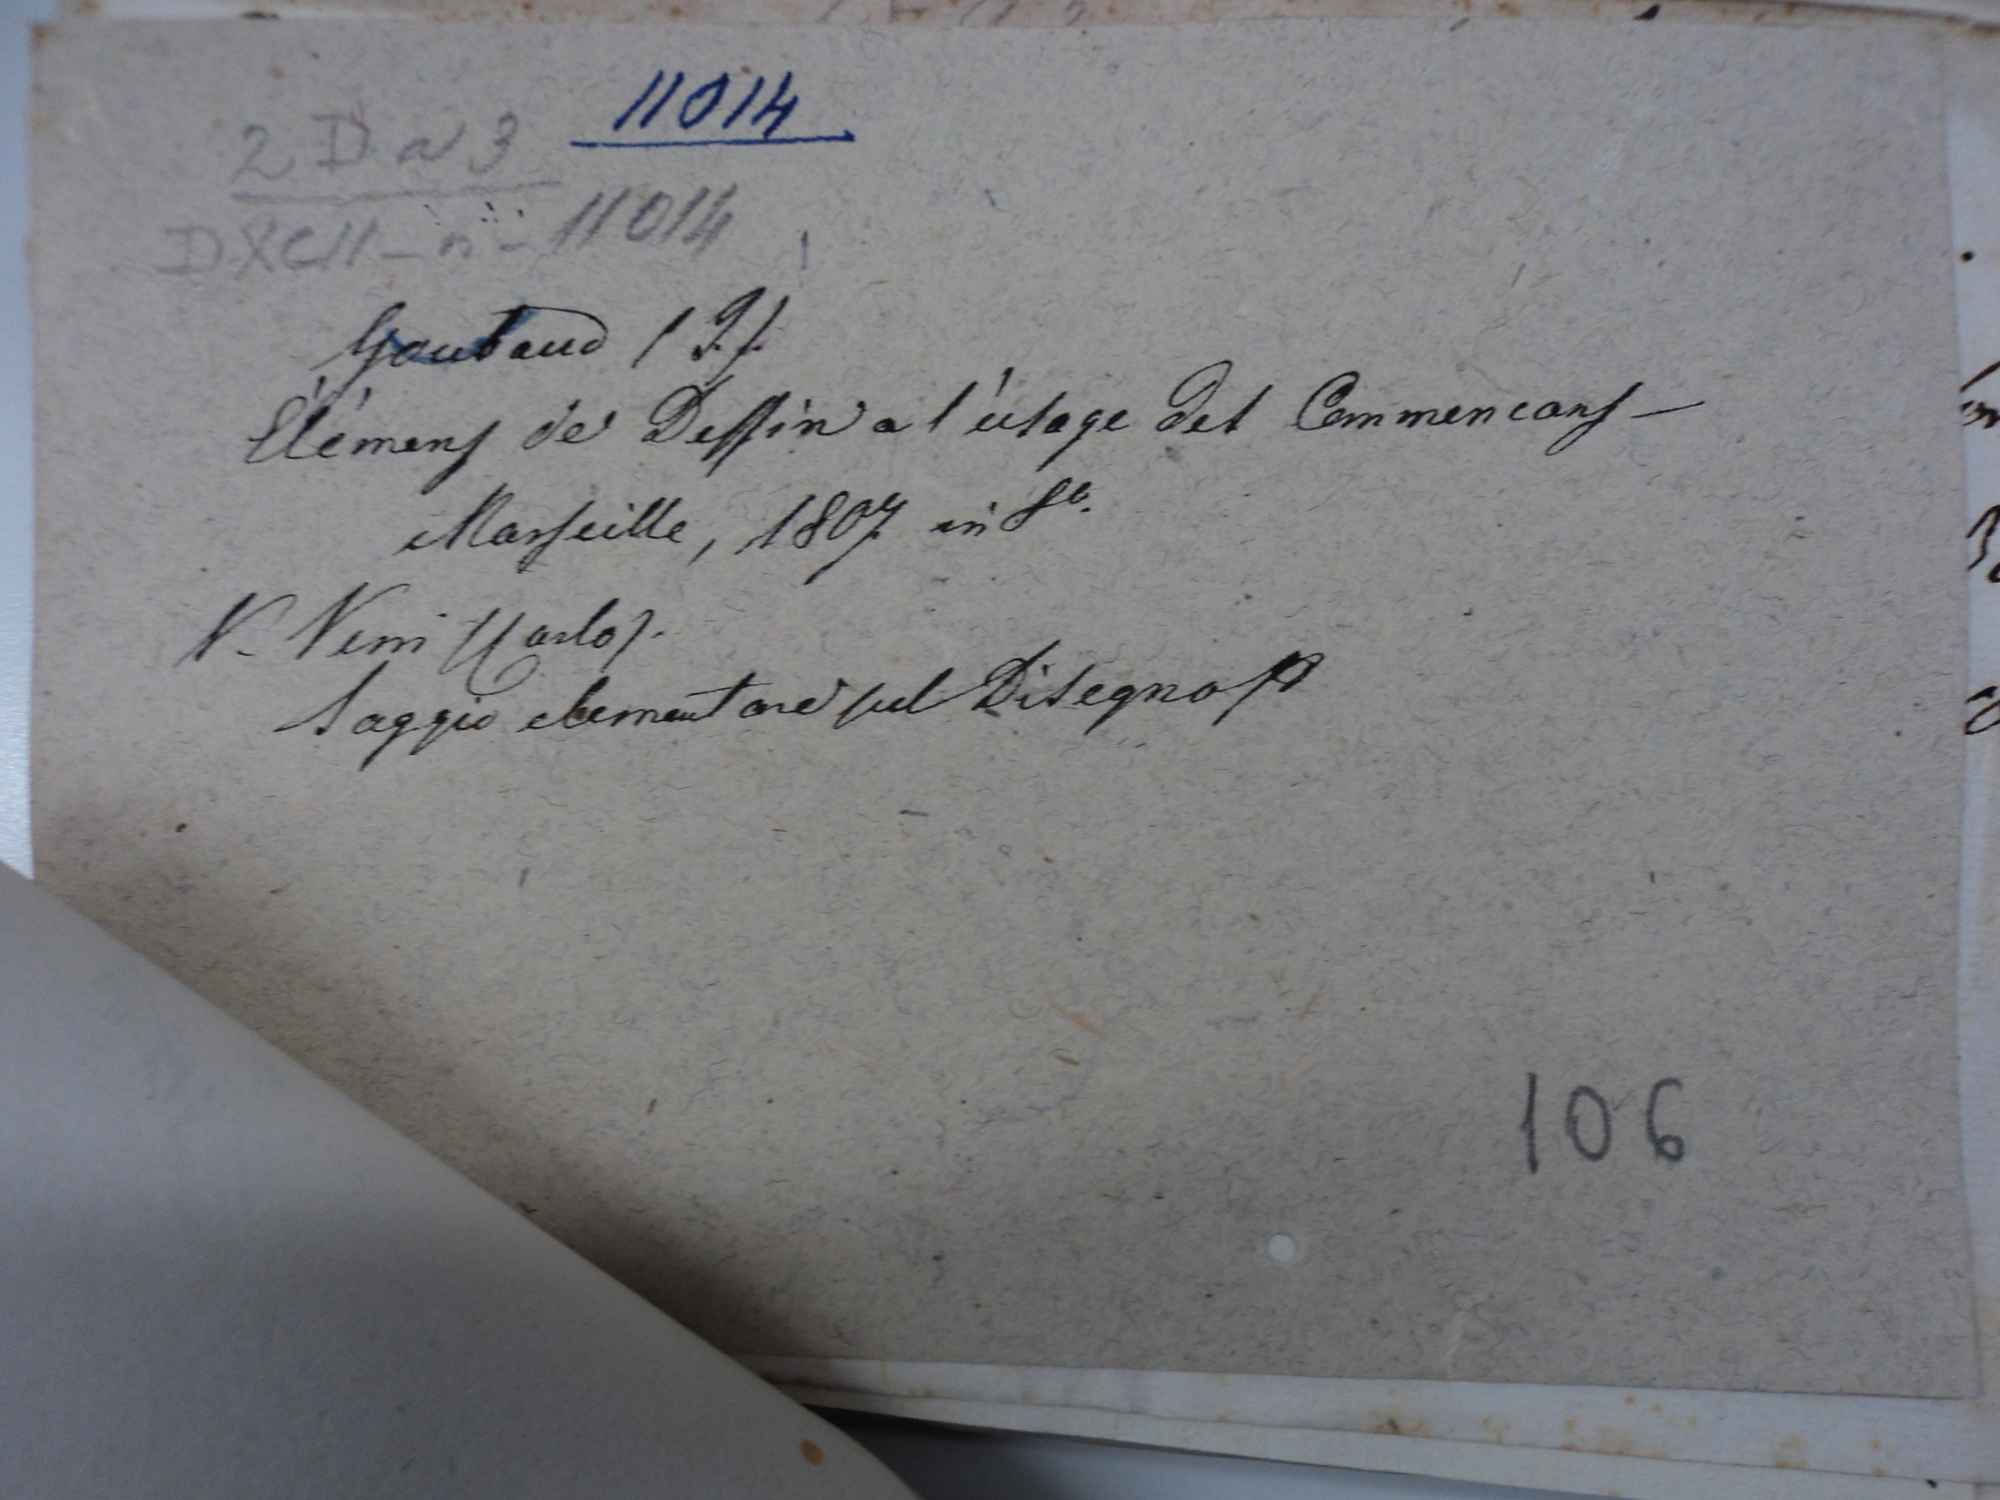 11014
2 D a 3
DXCII - n - 11014
Goubaud (J.)
Elémens de Dessin a l'usage des Commencans -
Marseille, 1807. in 8º.
V. Verri (Carlo).
Saggio elementare sul Disegno
106